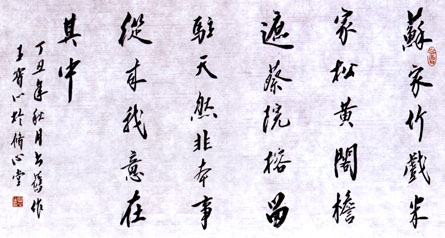 蘇家竹戲米
家松黃閣檐
遮蔡院榕留
駐天然非本事
從來我意在
其中
丁丑年秋月書舊作
王有心於脩心堂